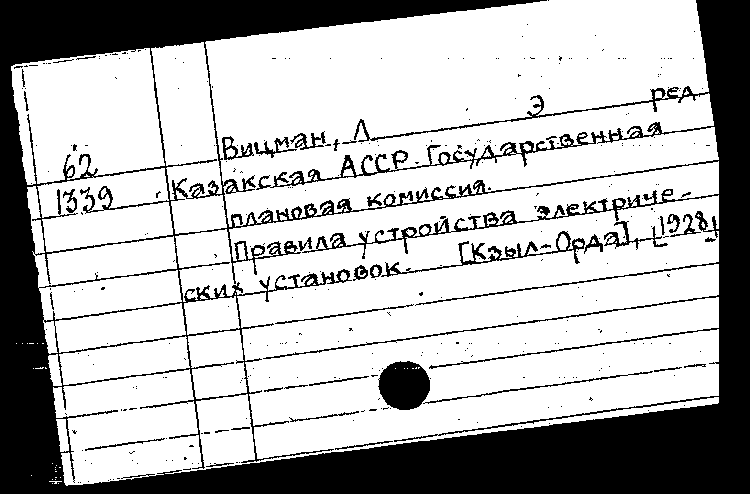 62 Вицман, Л Э ред
1339 Казакская АССР. Государственная
плановая комиссия.
Правила устройства электриче-
ских установок. [Кзыл-Орда], [1928]